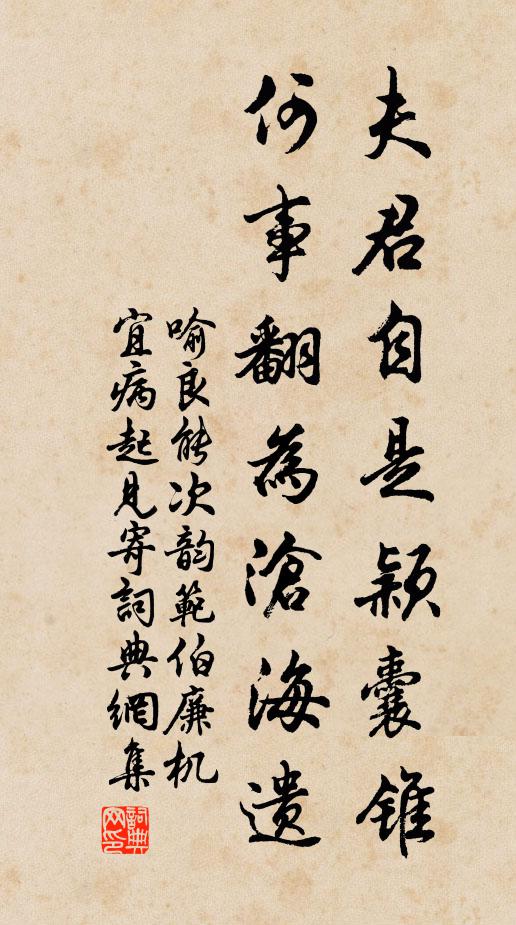 夫君自是颖囊锥
何事翻為滄海遗
喻良能次韵範伯廉机
宜病起見寄詞典網集
詞典网印